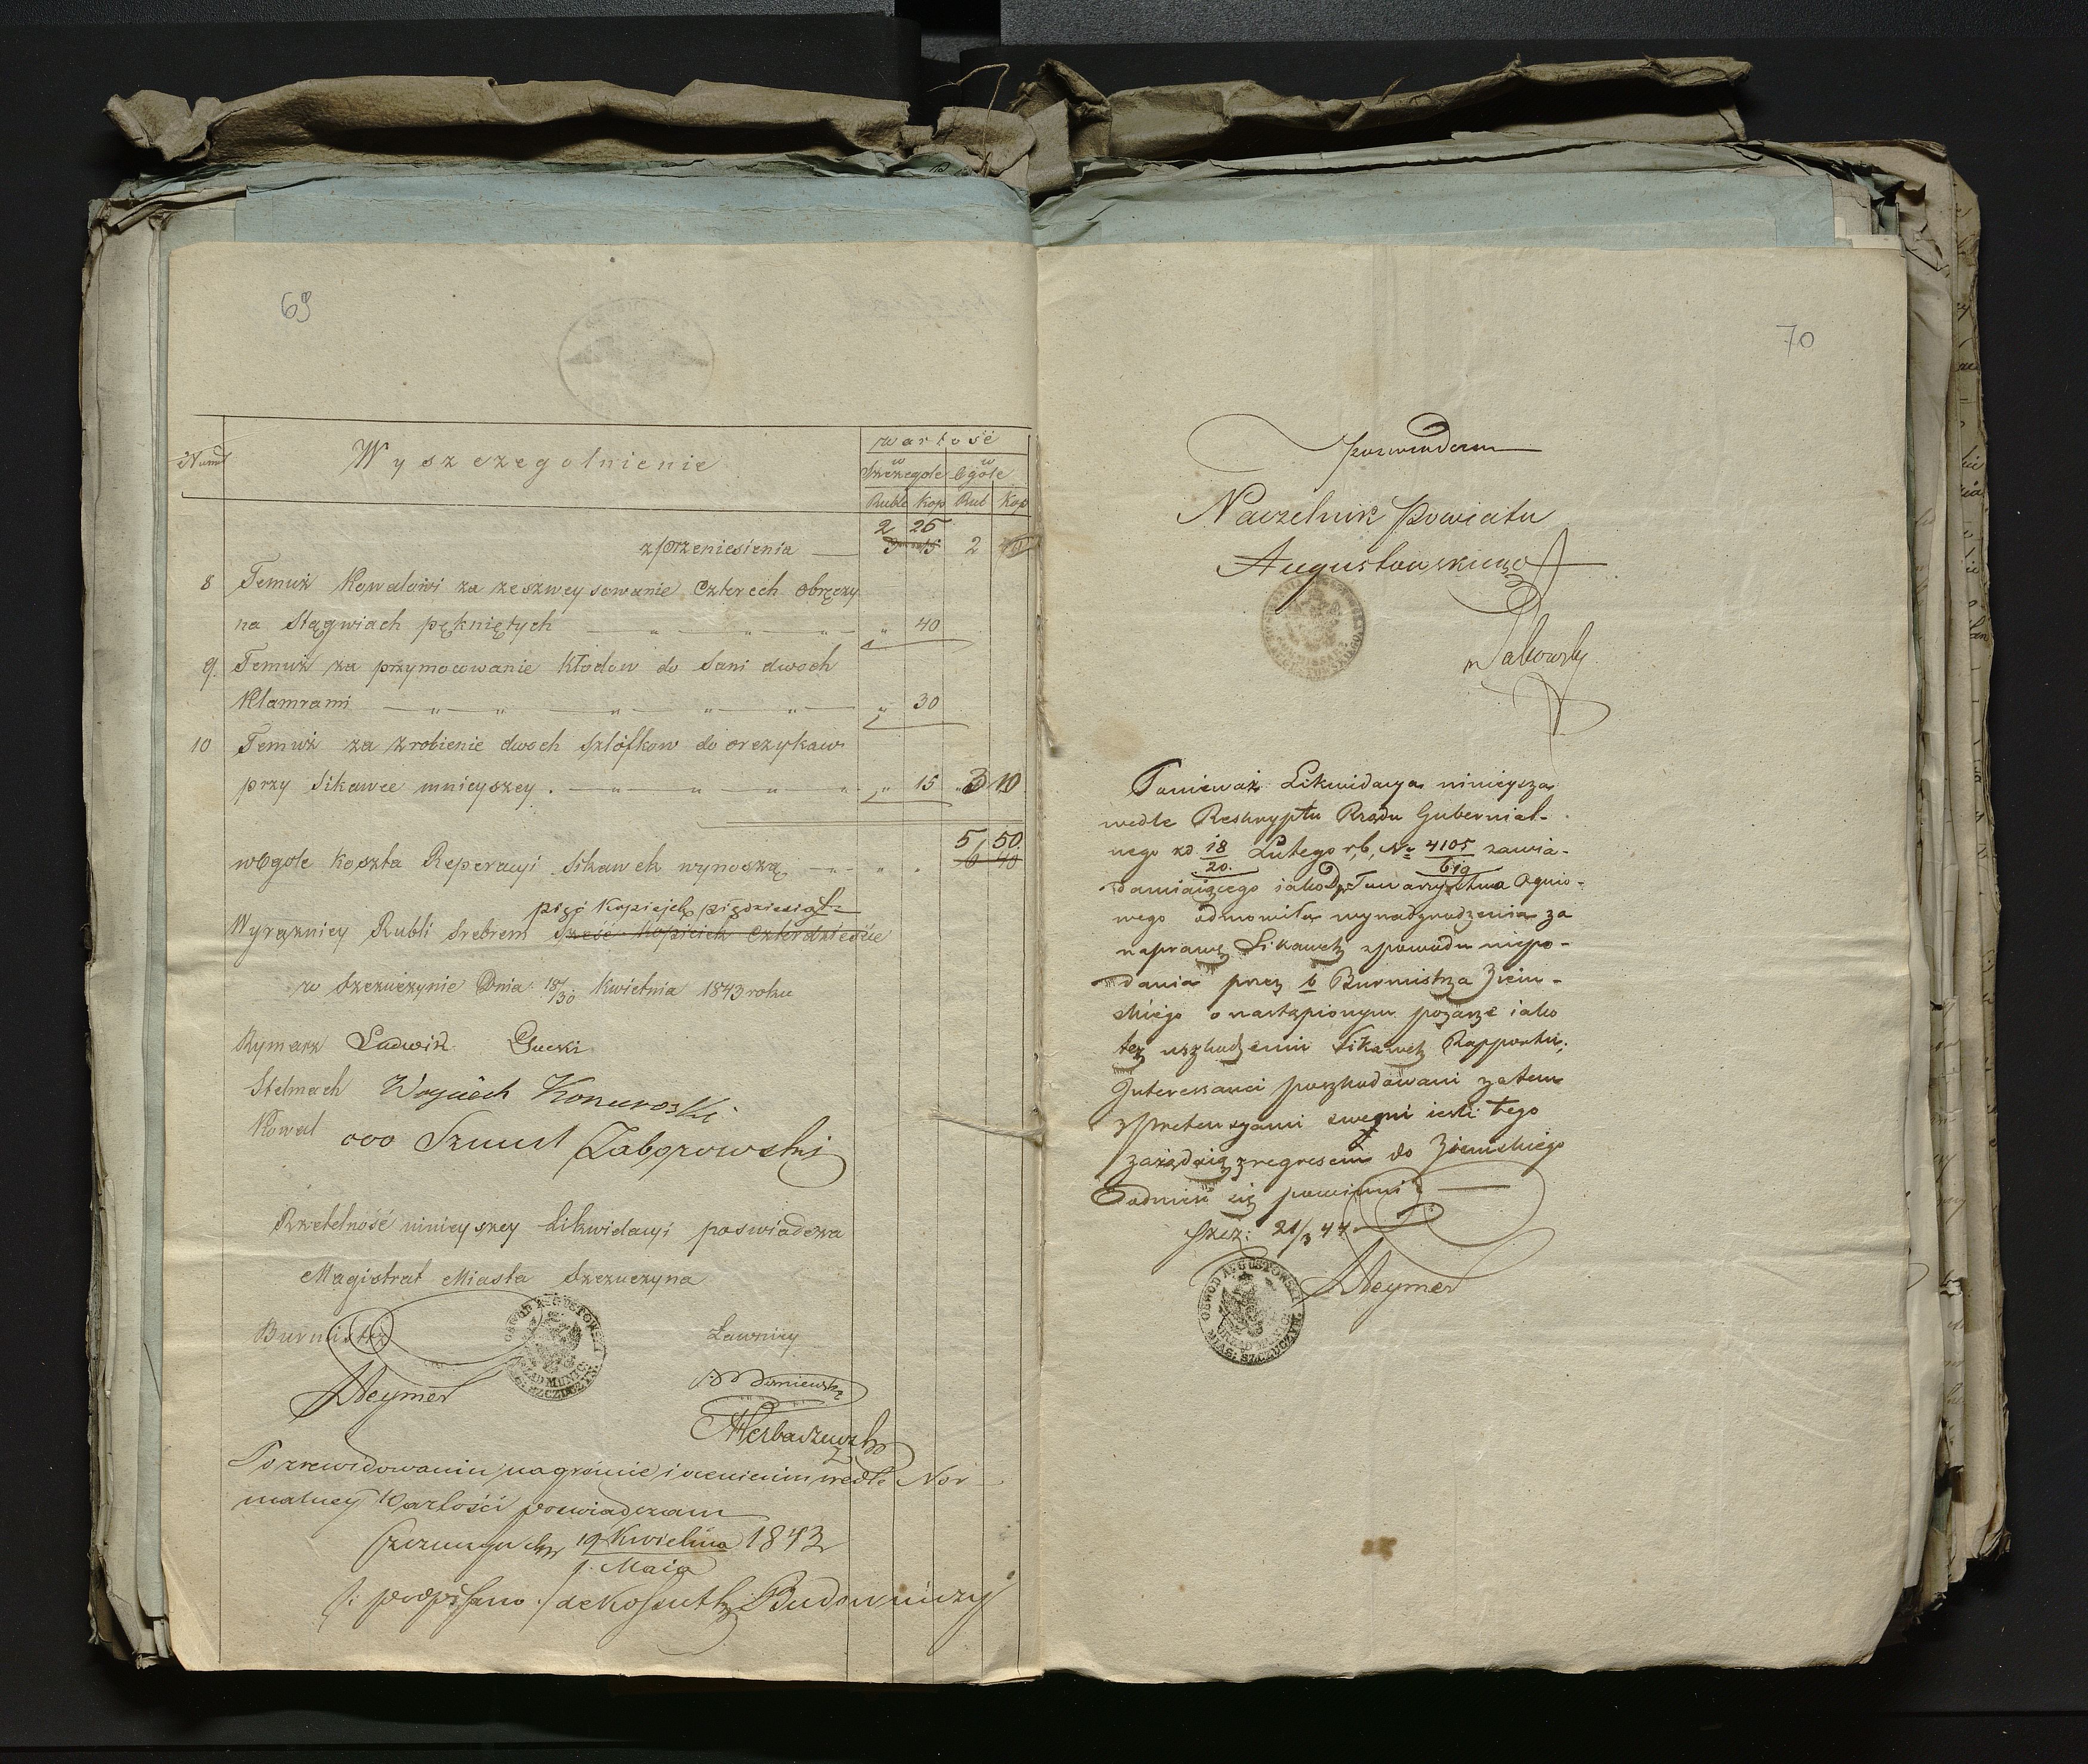 69
Num
Wyszczegolnienie
wartość
w Szczegole w Ogóle
Ruble Kop Rub Kop
2 25
z przeniesienia — 3 15 2 40
8 Temuż Kowalowi za zeszweysowanie czterech obręczy
na Stągwiach pękniętych — „ 40
9. Temuż za przymocowanie kłodów do Sani dwoch
Klamrami — „ 30
10 Temuż za zrobienie dwoch sztófkow do orczykow
przy Sikawce mnieyszey . — „ 15 „ 3 10
5 50
wOgole koszta Reperacyi Sikawek wynoszą — „ . 6 40
pięć Kopiejek pięćdziesiąt
Wyrazniey Rubli Srebrem Sześć Kopieiek czterdzieście
w Szczuczynie Dnia 18/30 Kwietnia 1843 roku
Rymarz Ludwik Ducki
Stelmach Woyciech Konuroski
Kowal ooo Szmul Zaborowski
Rzetelność ninieyszey Likwidacyi poswiadcza
Magistrat Miasta Szczuczyna
Burmistrz Ławnicy
OBWOD AUGUSTOWSKI
URZĄD MUNICY.
MIAS: SZCZUCZYN.
Meymer
Po zrewidowaniu na gruncie i ocenieniu wedle Nor-
malney Wartości poswiadczam
Szczuczyn dnia 19 Kwietnia 1843
1. Maia
/: podpisano :/ de Kossuth Budowniczy
70
Poswiadczam
Naczelnik Powiatu
Augustowskiego
Ponieważ Likwidacya ninieysza
wedle Reskryptu Rządu Gubernial-
nego z d 18 Lutego r, b, No 4105 zawia-
20. 619
damiaiącego iako Dyr Towarzystwa Ognio-
wego odmowiła wynadgrodzenia za
naprawę Sikawek z powodu niepo-
dania przez b Burmistrza Ziem-
skiego o nastąpionym pożarze iako
też uszkodzeniu Sikawek Rapportu;
Interessanci poszkodowani zatem
z pretensyami swemi ieśli tego
zażądaią z regresem do Ziemskiego
odnieść się powinni. —
Szcz: 21/3 44
Meymer
OBWOD AUGUSTOWSKI
URZĄD MUNICY.
MIAS: SZCZUCZYN.